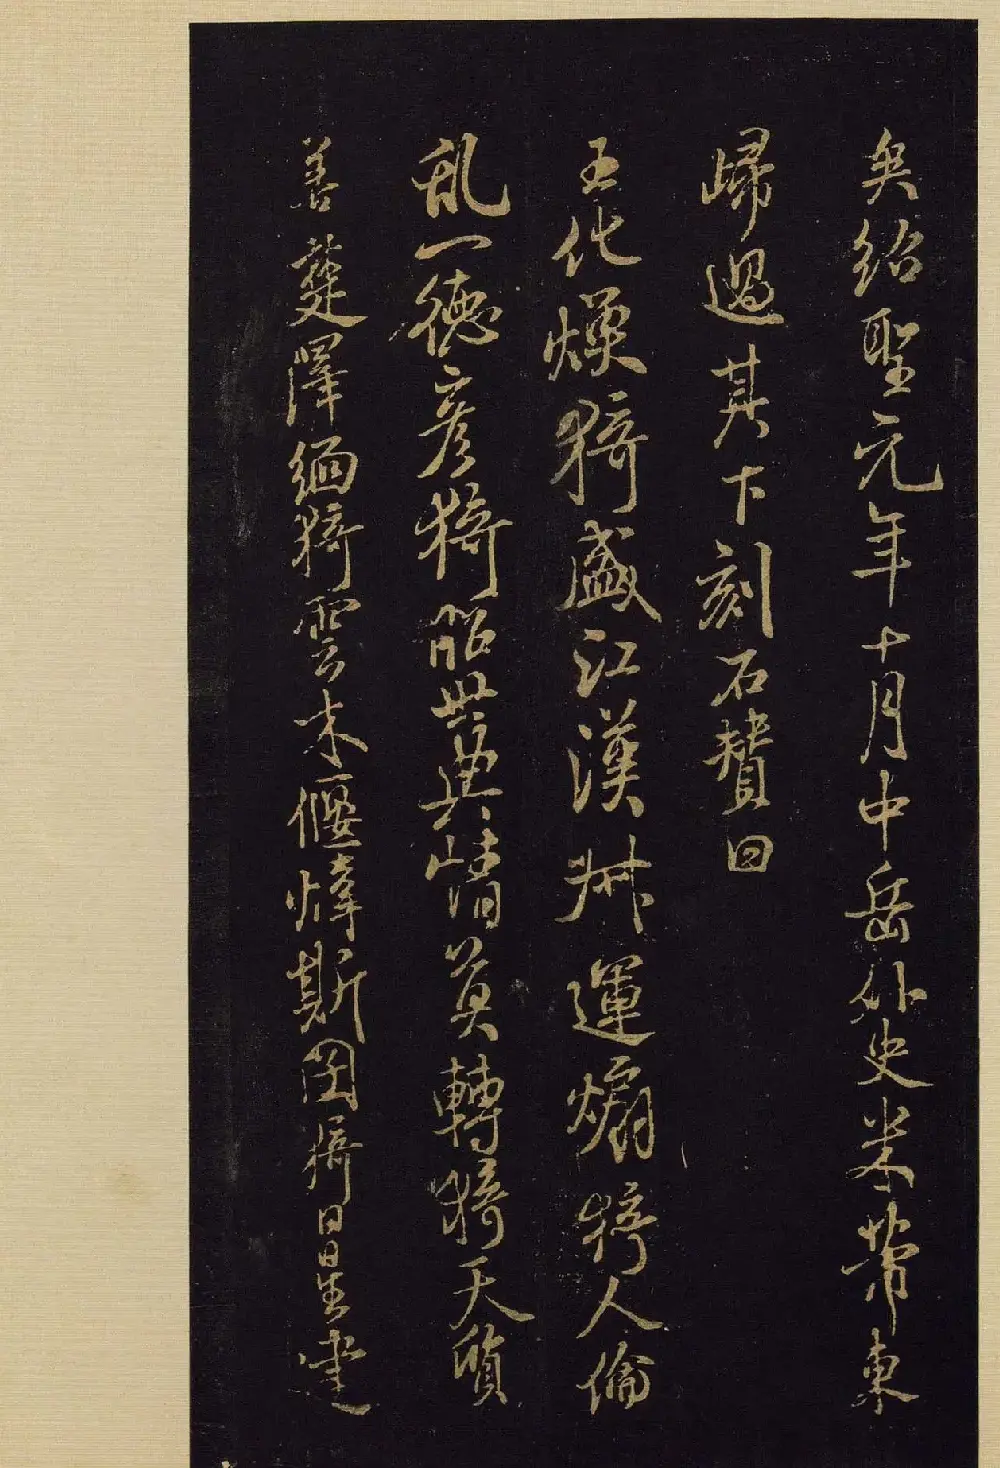 矣紹聖元年十月中岳外史米芾東
歸過其下刻石贊曰
王化煥猗盛江漢叔運煽猗人倫
亂一德彥猗昭世典情莫轉猗天質
善楚澤緬猗雲木偃煒斯猗日星建